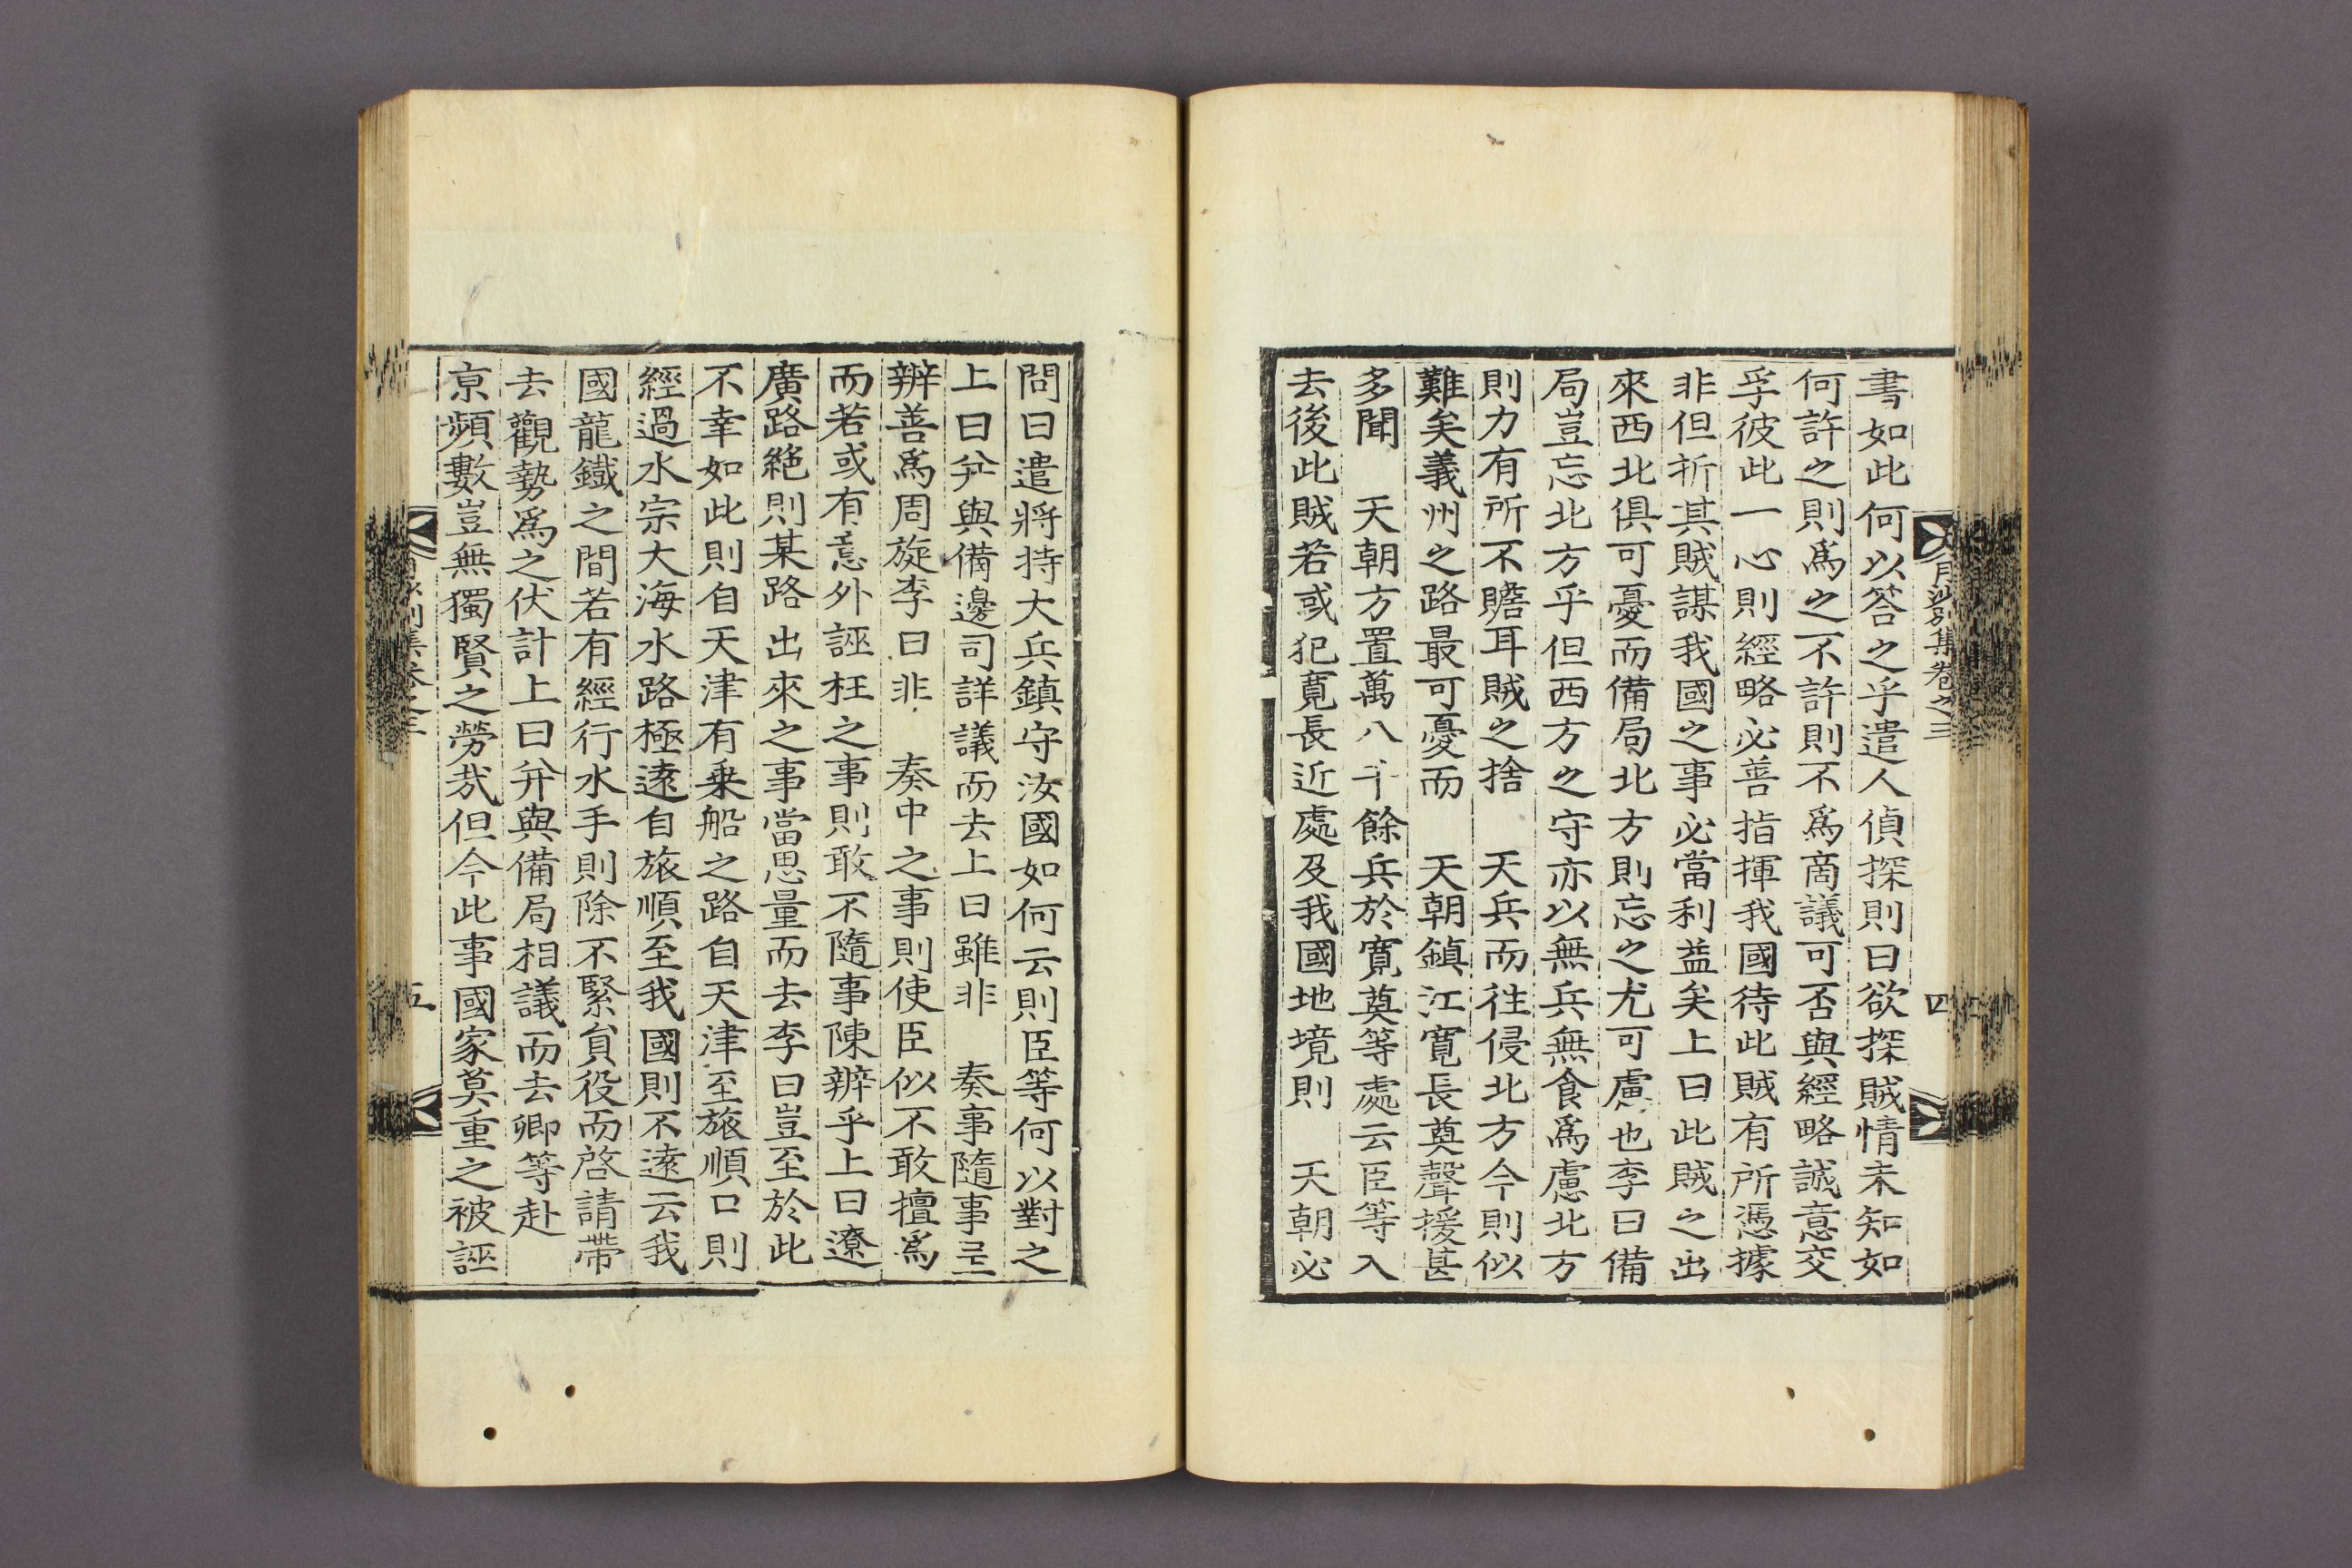 書如此何以答之乎遣人偵探則曰欲探賊情未知如
何許之則爲之不許則不爲啇議可否與經略誠意交
孚彼此一心則經略必善指揮我國待此賊有所憑據
非但折其賊謀我國之事必當利益矣上曰此賊之出
來西北俱可憂而備局北方則忘之尤可慮也李曰備
局豈忘北方乎但西方之守亦以無兵無食爲慮北方
則力有所不贍耳賊之捨 天兵而往侵北方今則似
難矣義州之路最可憂而 天朝鎮江寬長奠聲援甚
多聞 天朝方置萬八千餘兵於寬奠等處云臣等入
去後此賊若或犯寬長近處及我國地境則 天朝必
月沙別集卷之三
四
問曰遣將持大兵鎮守汝國如何云則臣等何以對之
上曰并與備邊司詳議而去上曰雖非 奏事隨事
辨善爲周旋李曰非 奏中之事則使臣似不敢擅爲
而若或有意外誣枉之事則敢不隨事陳辨乎上曰遼
廣路絶則某路出來之事當思量而去李曰豈至於此
不幸如此則自天津有乗船之路自天津至旅順口則
經過水宗大海水路極遠自旅順至我國則不遠云我
國龍鐵之間若有經行水手則除不緊負役而啓請帶
去觀勢爲之伏計上曰并與備局相議而去卿等赴
京頻數豈無獨賢之勞㢤但今此事國家莫重之被誣
別集卷之三
五